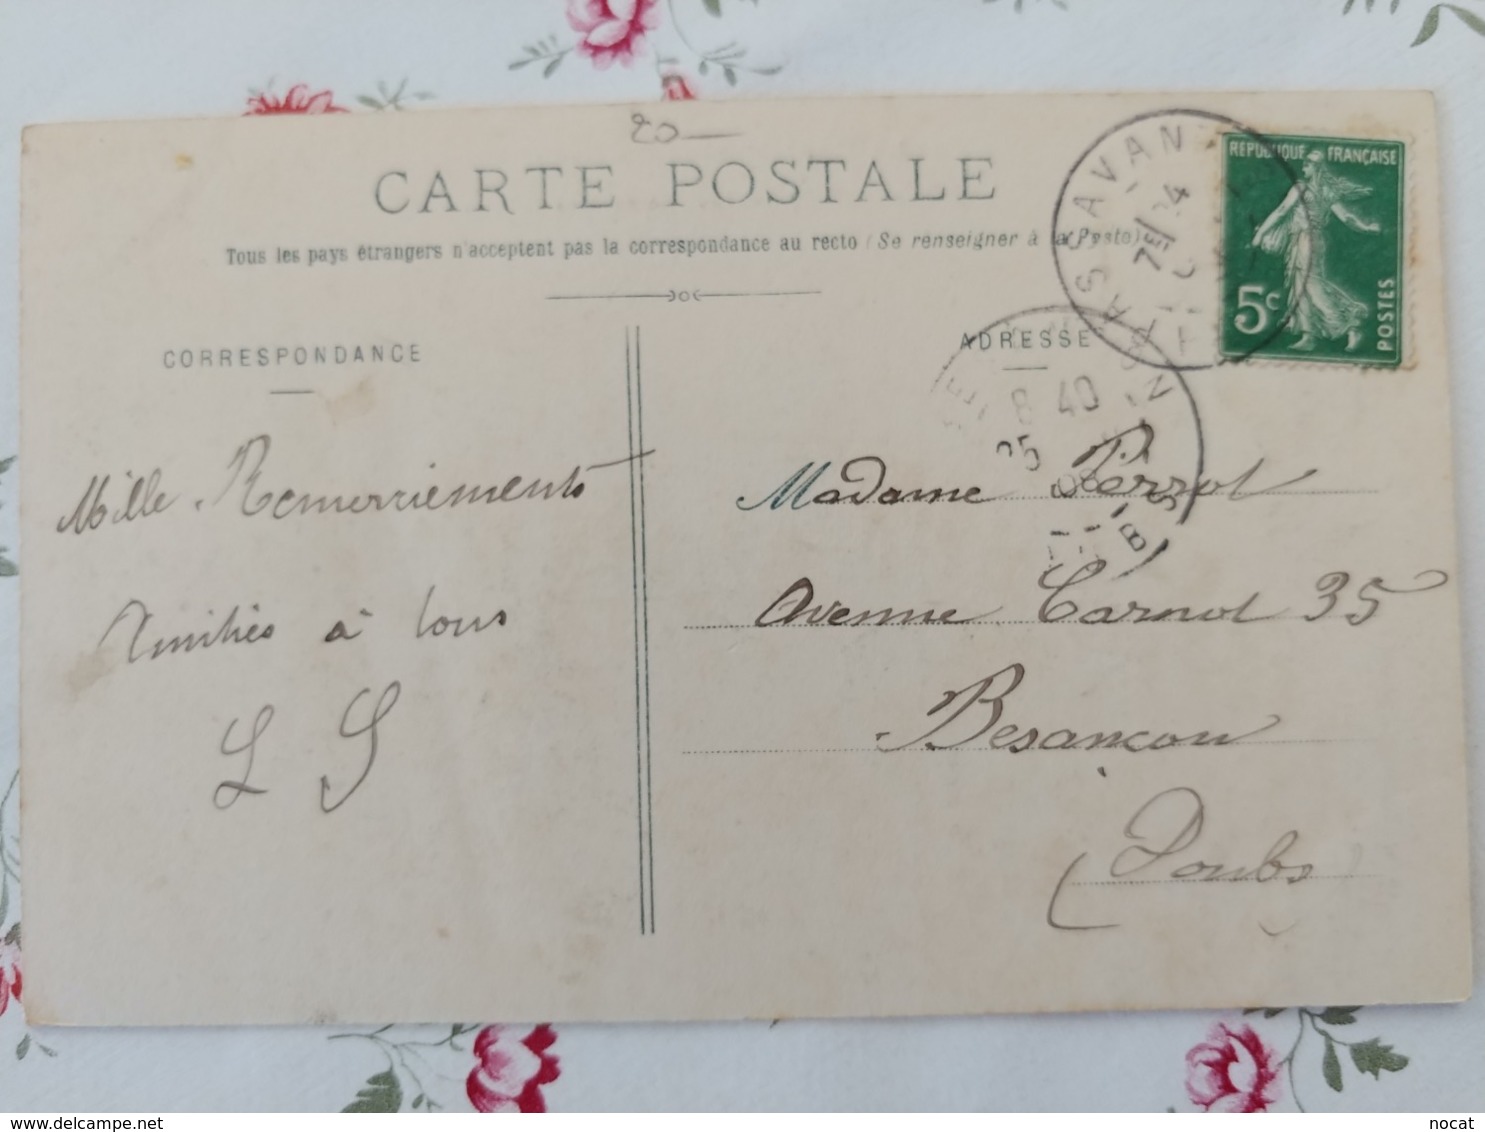 20
CARTE POSTALE
Tous les pays étrangers n'acceptent pas la correspondance au recto (Se renseigner à la Poste)
CORRESPONDANCE
Mille Remerciements
Amitiés à tous
L S
ADRESSE
Madame Perrot
Avenue Carnot 35
Besançon
Doubs
PASSAVAN
7E 24
8 40
25
08
DOUBS
REPUBLIQUE FRANÇAISE
5c
POSTES
delcampe.net
nocat